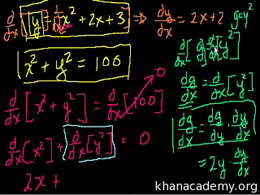 d/dx [y] = d/dx [x² + 2x + 3] ⇒ dy/dx = 2x + 2
g = y²
x² + y² = 100
dg/dx = d/dx [y²]
d/dx [x² + y²] = d/dx [100] → 0
dg/dx = dg/dy · dy/dx
d/dx [x²] + d/dx [y²] = 0
= 2y · dy/dx
2x +
khanacademy.org